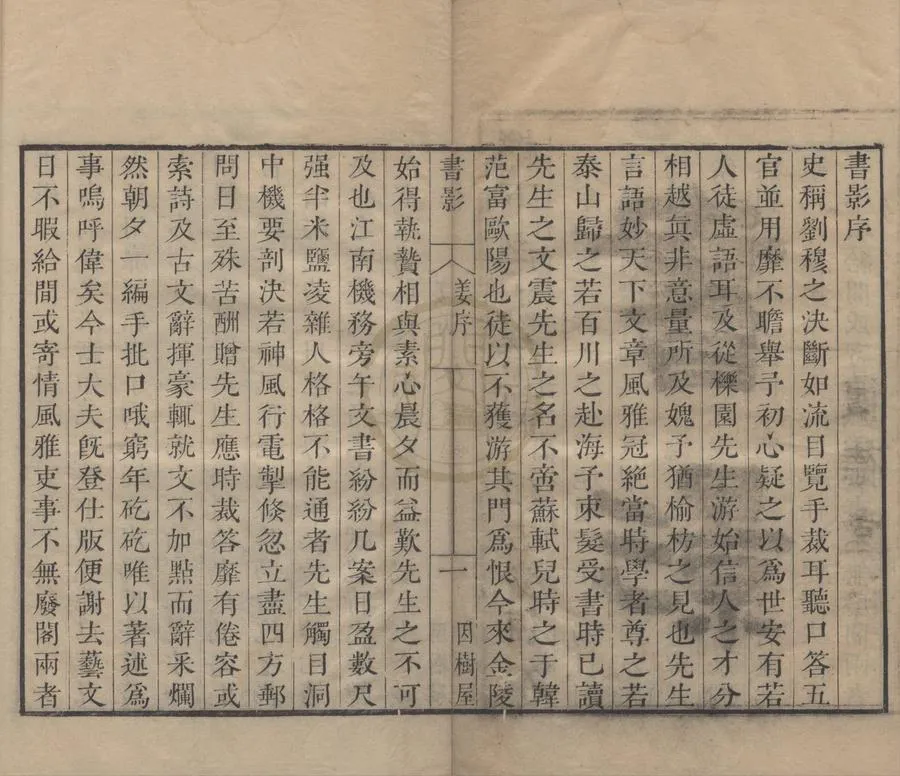 書影序
史稱劉穆之決斷如流目覽手裁耳聽口答五
官並用靡不瞻舉予初心疑之以爲世安有若
人徒虛語耳及從櫟園先生游始信人之才分
相越眞非意量所及媿予猶榆枋之見也先生
言語妙天下文章風雅冠絕當時學者尊之若
泰山歸之若百川之赴海予束髮受書時已讀
先生之文震先生之名不啻蘇軾兒時之于韓
范富歐陽也徒以不獲游其門爲恨今來金陵
書影 姜序 一 因樹屋
始得執贄相與素心晨夕而益歎先生之不可
及也江南機務旁午文書紛紛几案日盈數尺
强半米鹽凌雜人格格不能通者先生觸目洞
中機要剖決若神風行電掣倏忽立盡四方郵
問日至殊苦酬贈先生應時裁答靡有倦容或
索詩及古文辭揮豪輒就文不加點而辭采爛
然朝夕一編手批口哦窮年矻矻唯以著述爲
事嗚呼偉矣今士大夫旣登仕版便謝去藝文
日不暇給間或寄情風雅吏事不無廢閣兩者